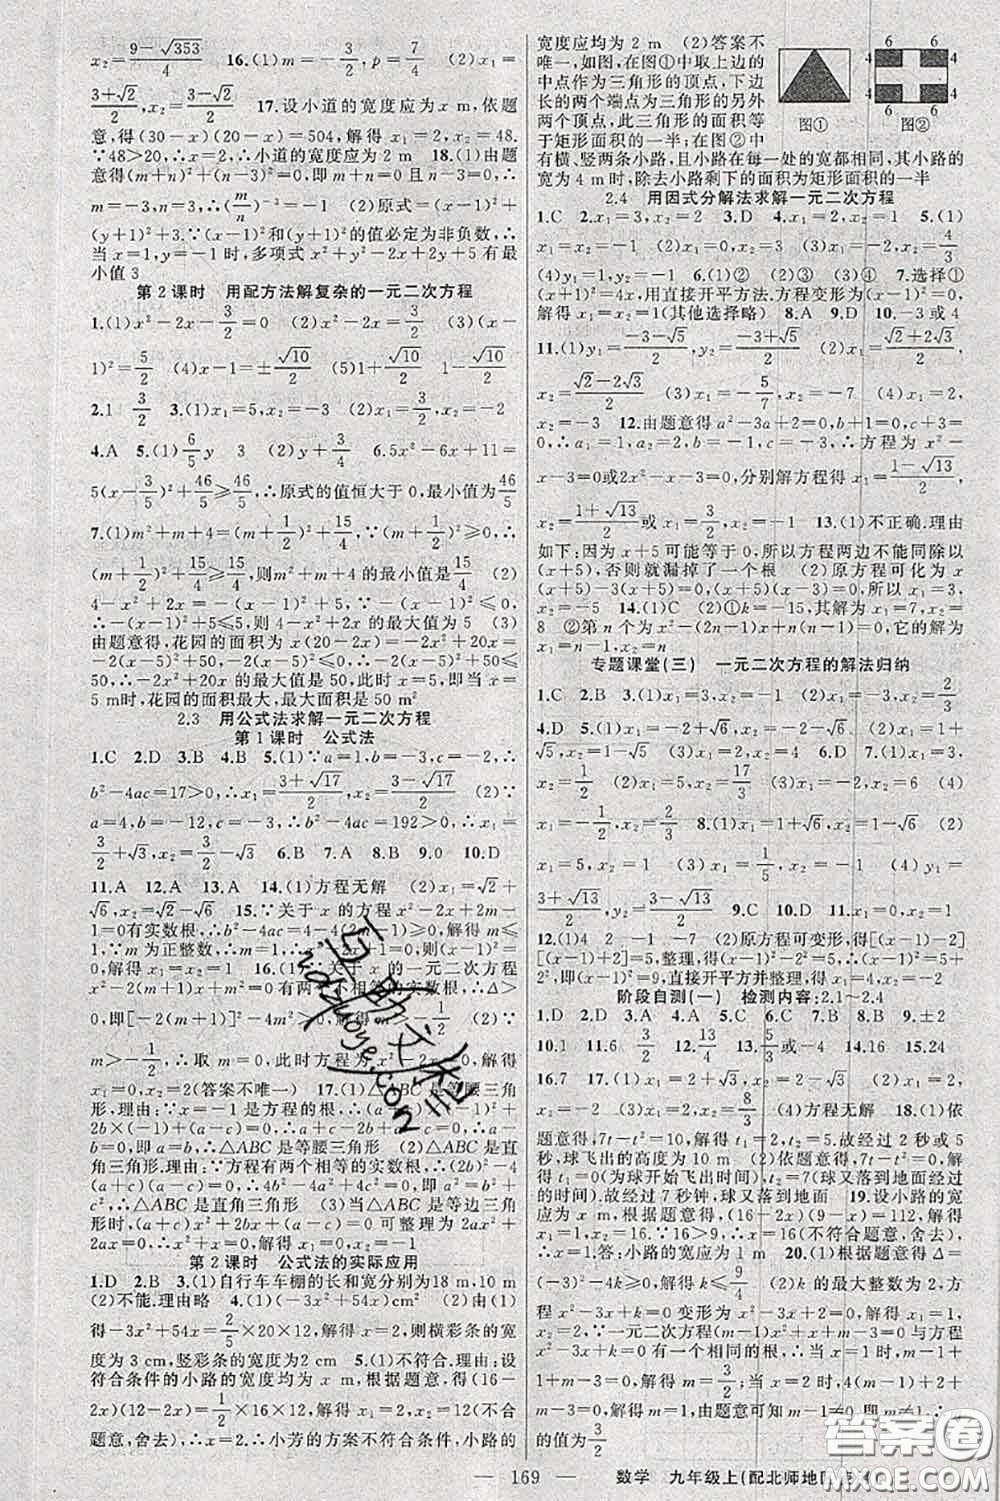 x₂=(9-√353)/4 16.(1)m=-3/2,p=7/4 (2)x₁=
(3+√2)/2,x₂=(3-√2)/2 17.设小道的宽度应为x m,依题
意,得(30-x)(20-x)=504,解得 x₁=2,x₂=48.
∵48>20,∴x=2,∴小道的宽度应为2 m 18.(1)由题
意得(m+n)²+(n-3)²=0,∴m+n=0 且 n-3=0,∴
m=-3,n=3,∴m/n=-1 (2)原式=(x-1)²+
(y+1)²+3,∵(x-1)²和(y+1)²的值必定为非负数,∴
当x=1,y=-1 时,多项式 x²+y²-2x+2y+5 有最
小值3
第2课时 用配方法解复杂的一元二次方程
1.(1)x²-2x-3/2=0 (2)x²-2x=3/2 (3)(x-
1)²=5/2 (4)x-1=±√10/2 1+√10/2 1-√10/2
2.1 3/2 3.(1)x₁=5,x₂=-3 (2)x₁=3,x₂=-2
4.A 5.(1)6/5 y 3 (2)x+3/4 6.5x²-6x+11=
5(x-3/5)²+46/5≥46/5,∴原式的值恒大于0,最小值为46/5
7.(1)m²+m+4=(m+1/2)²+15/4,∵(m+1/2)²≥0,∴
(m+1/2)²+15/4≥15/4,则m²+m+4的最小值是15/4 (2)
4-x²+2x=-(x-1)²+5,∵-(x-1)²≤0,
∴-(x-1)²+5≤5,则4-x²+2x的最大值为5 (3)
由题意,得花园的面积为 x(20-2x)=-2x²+20x=
-2(x-5)²+50,∵-2(x-5)²≤0,∴-2(x-5)²+
50≤50,∴-2x²+20x的最大值是50,此时x=5,则当x=
5 m时,花园的面积最大,最大面积为50 m²
2.3 用公式法求解一元二次方程
第1课时 公式法
1.C 2.D 3.B 4.B 5.(1)∵a=1,b=-3,c=-2,∴
b²-4ac=17>0,∴x₁=(3+√17)/2,x₂=(3-√17)/2 (2)∵
a=4,b=-12,c=-3,∴b²-4ac=192>0,∴x₁=
3/2+√3,x₂=3/2-√3 6.B 7.B 8.B 9.D 10.D
11.A 12.A 13.A 14.(1)方程无解 (2)x₁=√2+
√6,x₂=√2-√6 15.∵关于 x 的方程x²-2x+2m-
1=0有实数根,∴b²-4ac=4-4(2m-1)≥0,解得m≤
1,∵m为正整数,∴m=1,∴x²-2x+1=0,则(x-1)²=
0,解得x₁=x₂=1 16.(1)∵关于 x 的一元二次方程
x²-2(m+1)x+m²=0有两个不相等的实数根,∴Δ>
0,即[-2(m+1)]²-4m²>0,解得m>-1/2 (2)∵
m>-1/2,∴取 m=0,此时方程为 x²-2x=0,解得
x₁=0,x₂=2(答案不唯一) 17.(1)△ABC是等腰三角
形.理由:∵x=-1是方程的根,∴(a+c)×(-1)²+
2b×(-1)+(a-c)=0,∴a+c-2b+a-c=0,∴a-
b=0,即a=b,∴△ABC是等腰三角形 (2)△ABC是直
角三角形.理由:∵方程有两个相等的实数根,∴(2b)²-4
(a+c)(a-c)=0,∴4b²-4a²+4c²=0,即a²=b²+
c²,∴△ABC是直角三角形 (3)当△ABC是等边三角
形时,(a+c)x²+2bx+(a-c)=0可整理为2ax²+
2ax=0,∴x²+x=0,解得x₁=0,x₂=-1
第2课时 公式法的实际应用
1.D 2.B 3.(1)自行车车棚的长和宽分别为18 m,10 m
(2)不能.理由略 4.(1)(-3x²+54x)cm² (2)由(1)
得-3x²+54x=2/5×20×12,解得 x=2,则横彩条的宽
度为 3 cm,竖彩条的宽度为2 cm 5.(1)不符合.理由:设
符合条件的小路的宽度均为 x m,根据题意,得(16-
2x)(12-2x)=1/2×16×12,解得x₁=2,x₂=12(不合
题意,舍去),∴x=2,∴小芳的方案不符合条件,小路的
宽度应均为 2 m (2)答案不
唯一,如图,在图①中取上边的
中点作为三角形的顶点,下边
长的两个端点为三角形的另外
两个顶点,此三角形的面积等
于矩形面积的一半;在图②中
6 6
4 4
4 4
6 6
图① 图②
有横、竖两条小路,且小路在每一处的宽都相同,其小路的
宽为 4 m时,除去小路剩下的面积为矩形面积的一半
2.4 用因式分解法求解一元二次方程
1.C 2.x₁=3,x₂=2 3.D 4.x₁=2,x₂=1 5.(1)
(4)y₁=1,y₂=-2 6.(1)② (2)① (3)④ 7.选择①
x²-2x+1=4,用直接开平方法.方程变形为(x-1)²=4,
解得x₁=3,x₂=-1(其他选择略) 8.A 9.D 10.-3或4
11.(1)y₁=(-3-√5)/2,y₂=(-3+√5)/2 (2)x₁=(√2+2√3)/2,
x₂=(√2-2√3)/2 (3)x₁=-5/7,x₂=5 (4)x₁=2,
x₂=3/2 12.由题意得a²-3a+2=0,b+1=0,c+3=
0,∴a₁=1,a₂=2,b=-1,c=-3,∴方程为x²-
x-3=0或2x²-x-3=0,分别解方程得x₁=(1-√13)/2,
x₂=(1+√13)/2或x₁=3/2,x₂=-1 13.(1)不正确.理由
如下:因为 x+5 可能等于0,所以方程两边不能同除以
(x+5),否则就漏掉了一个根 (2)原方程可化为 x
(x+5)-3(x+5)=0,(x-3)(x+5)=0,所以x₁=3,
x₂=-5 14.(1)C (2)①k=-15,其解为x₁=7,x₂=
8 ②第n个为x²-(2n-1)x+n(n-1)=0,它的解为
x₁=n-1,x₂=n
专题课堂(三) 一元二次方程的解法归纳
1.C 2.B 3.(1)x₁=3,x₂=-1 (2)x₁=-4,x₂=2/3
4.D 5.(1)x₁=-2+√6,x₂=-2-√6 (2)x₁=1+
√5,x₂=1-√5 6.D
7.(1)
x₁=-1/2,x₂=2/3 8.(1)x₁=1+√6,x₂=1-√6 (2)
x₁=5,x₂=1 (3)x₁=1/5,x₂=1 (4)y₁=
(3+√13)/2,y₂=(3-√13)/2 9.C 10.D 11.x₁=x₂=1
12.(1)4 2 -1 -7 (2)原方程可变形,得[(x-1)-2]
[(x-1)+2]=5,整理,得(x-1)²-2²=5,即(x-1)²=5+
2²,即(x-1)²=9,直接开平方并整理,得x₁=4,x₂=-2
阶段自测(一) 检测内容:2.1~2.4
1.D 2.D 3.A 4.A 5.C 6.C 7.B 8.B 9.±2
10.1 11.6 3/2 12.13/4 13.5/3或-4 14.15 15.24
16.7
(4)方程无解 18.(1)依
题意,得7t-t²=10,解得t₁=2,t₂=5.故经过2秒或5
秒,球飞出的高度为10 m (2)依题意,得7t-t²=0,解得
t₁=0(为球开始飞出时间),t₂=7(球又落到地面经过的
时间).故经过7秒钟,球又落到地面 19.设小路的宽
应为 x m,根据题意,得(16-2x)(9-x)=112,解得
x₁=1,x₂=16.∵16>9,∴x=16不符合题意,舍去,
∴x=1.答:小路的宽应为1 m 20.(1)根据题意,得Δ=
(-3)²-4k≥0,解得k≤9/4 (2)k的最大整数为2,方
程x²-3x+k=0变形为x²-3x+2=0,解得x₁=1,
x₂=2,∵一元二次方程(m-1)x²+x+m-3=0与方程
x²-3x+k=0有一个相同的根,∴当x=1时,m-1+1+
m-3=0,解得 m=3/2;当 x=2 时,4(m-1)+2+m-
3=0,解得m=1.由题意可知m-1≠0,
的值为3/2
— 169 — 数学 九年级上(配北师地